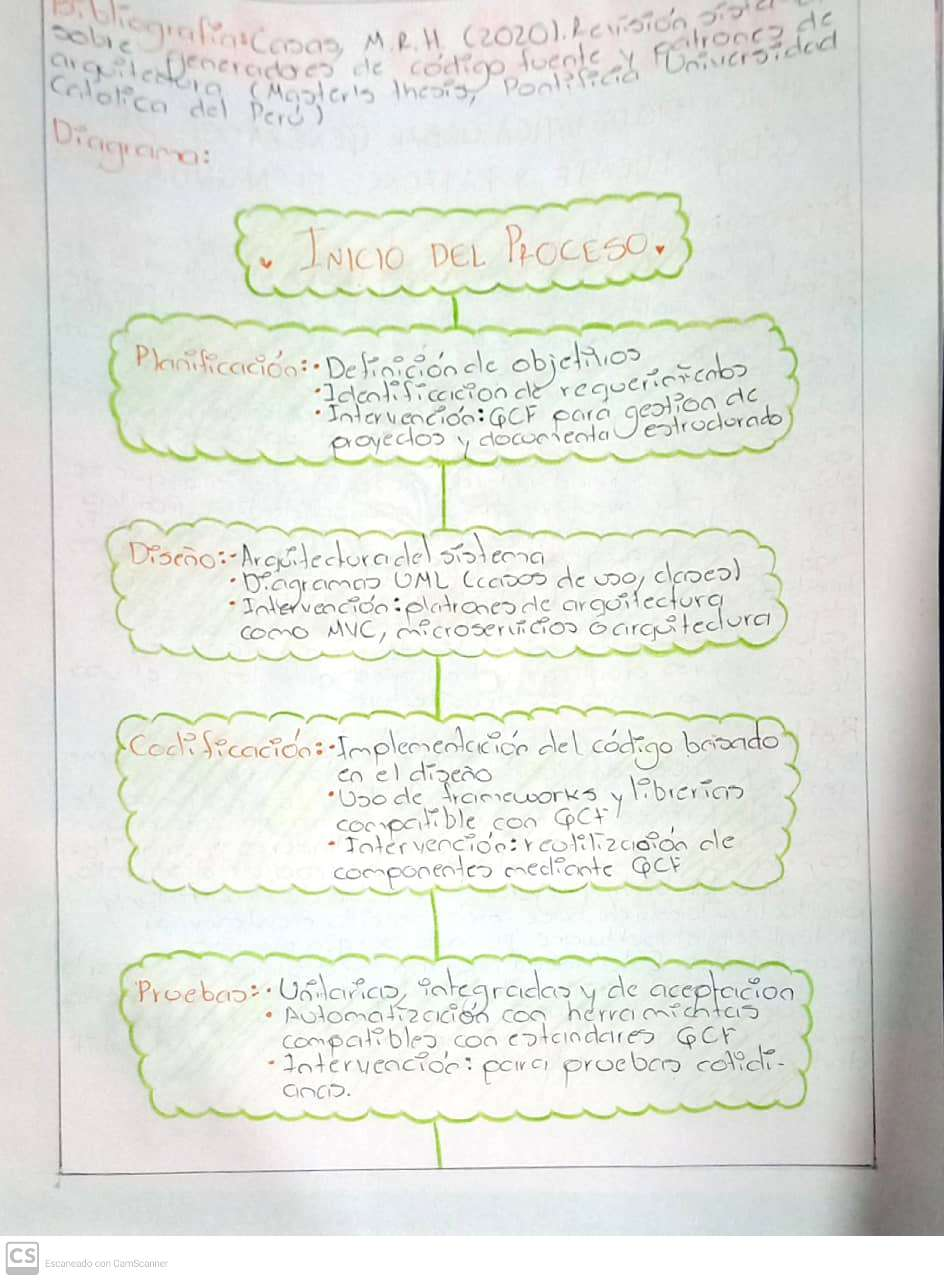 Bibliografía: Casas, M.R.H. (2020). Revisión
sobre Generadores de código fuente y Patrones de
arquitectura (Master's thesis, Pontificia Universidad
Catolica del Perú)
Diagrama:
INICIO DEL PROCESO
Planificación: • Definición de objetivos
• Identificacion de requerimientos
• Intervención: GCF para gestion de
proyectos y documenta estructurado
Diseño: • Arquitectura del sistema
• Diagramas UML (casos de uso, clases)
• Intervención: platrones de arquitectura
como MVC, microservicios o arquitectura
Codificación: • Implementación del código basado
en el diseño
• Uso de frameworks y librerias
compatible con GCF
• Intervención: reutilización de
componentes mediante GCF
Pruebas: • Unitarias, integradas y de aceptacion
• Automatización con
compatibles con estandares GCF
• Intervención: para pruebas cotidi-
anas.
CS Escaneado con CamScanner